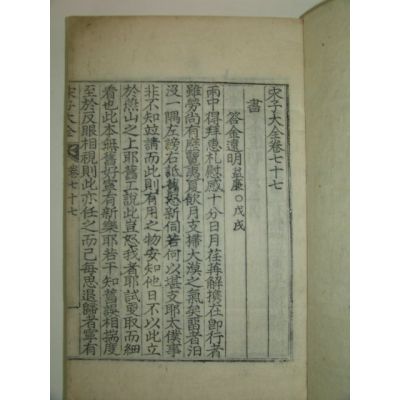 宋子大全卷七十七
書
答金遠明益廉○戊戌
雨中得拜惠札慰感十分日月荏苒解携在即行者
雖勞尚有歷覽
飲月支掃大漠之氣矣留者汨
沒一隅左謗右詆舊怒新何若何以堪支耶太僕事
非不知竝請而此則有用之物安知他日不以此立
於燕山之上耶舊工說此豈怒我者耶試更取而細
看也此本無舊好寧有新樂耶若干知舊誤相揣度
至於反眼相視則此亦任之而已每思退歸者寧有
宋子大全
卷七十七
一